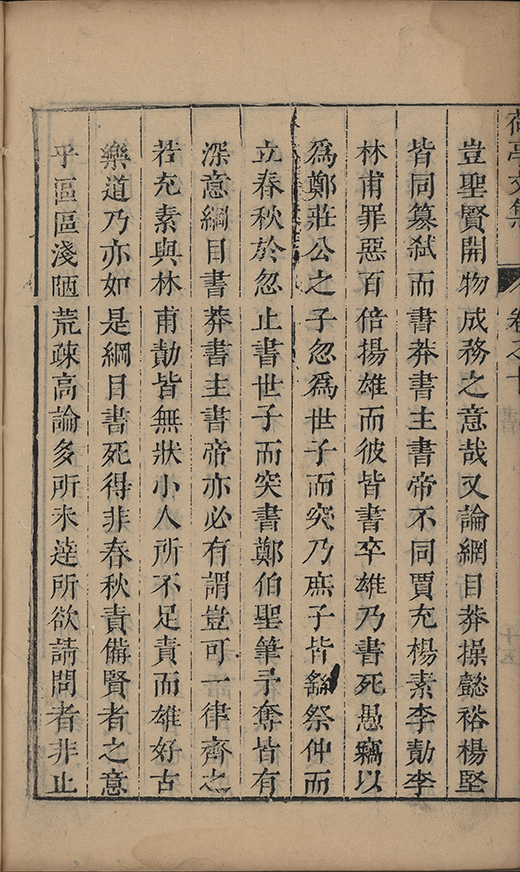 荷亭文集
卷之十
豈聖賢開物成務之意哉又論綱目莽操懿裕楊堅
皆同篡弑而書莽書主書帝不同賈充楊素李勣李
林甫罪惡百倍揚雄而彼皆書卒雄乃書死愚竊以
爲鄭莊公之子忽爲世子而突乃庶子皆繇祭仲而
立春秋於忽止書世子而突書鄭伯聖筆予奪皆有
深意綱目書莽書主書帝亦必有謂豈可一律齊之
若充素與林甫勣皆無狀小人所不足責而雄好古
樂道乃亦如是綱目書死得非春秋責備賢者之意
乎區區淺陋荒疎高論多所未達所欲請問者非止